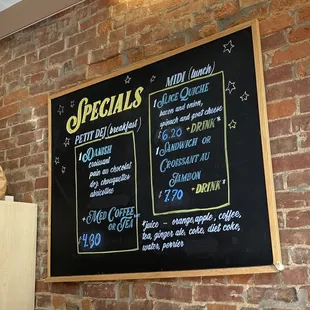 SPECIALS
PETIT DEJ (breakfast)
1 DANISH
croissant
pain au chocolat
dez. chouquettes
abricotine
+
MED COFFEE
OR TEA
$4.30
MIDI (lunch)
1 SLICE QUICHE
bacon and onion,
spinach and goat cheese
$6.20 + DRINK*
1 SANDWICH OR
CROISSANT AU
JAMBON
$7.70 + DRINK*
*juice - orange, apple, coffee,
tea, ginger ale, coke, diet coke,
water, perrier